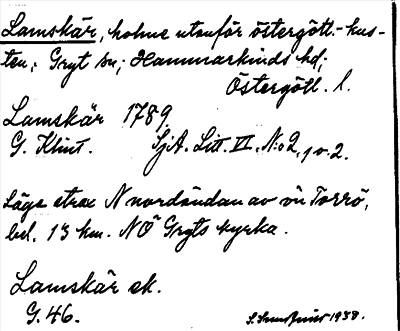 Lamskär, holme utanför östergötl.-kus-
ten; Gryt sn; Hammarkinds hd;
Östergötl. l.
Lamskär 1789
G. Klint. SjA. Litt. VI, N:o 2, 1 o. 2.
Läge strax N nordändan av ön Torrö,
bel. 13 km. NÖ Gryts kyrka.
Lamskär ek.
G. 46.
1938.